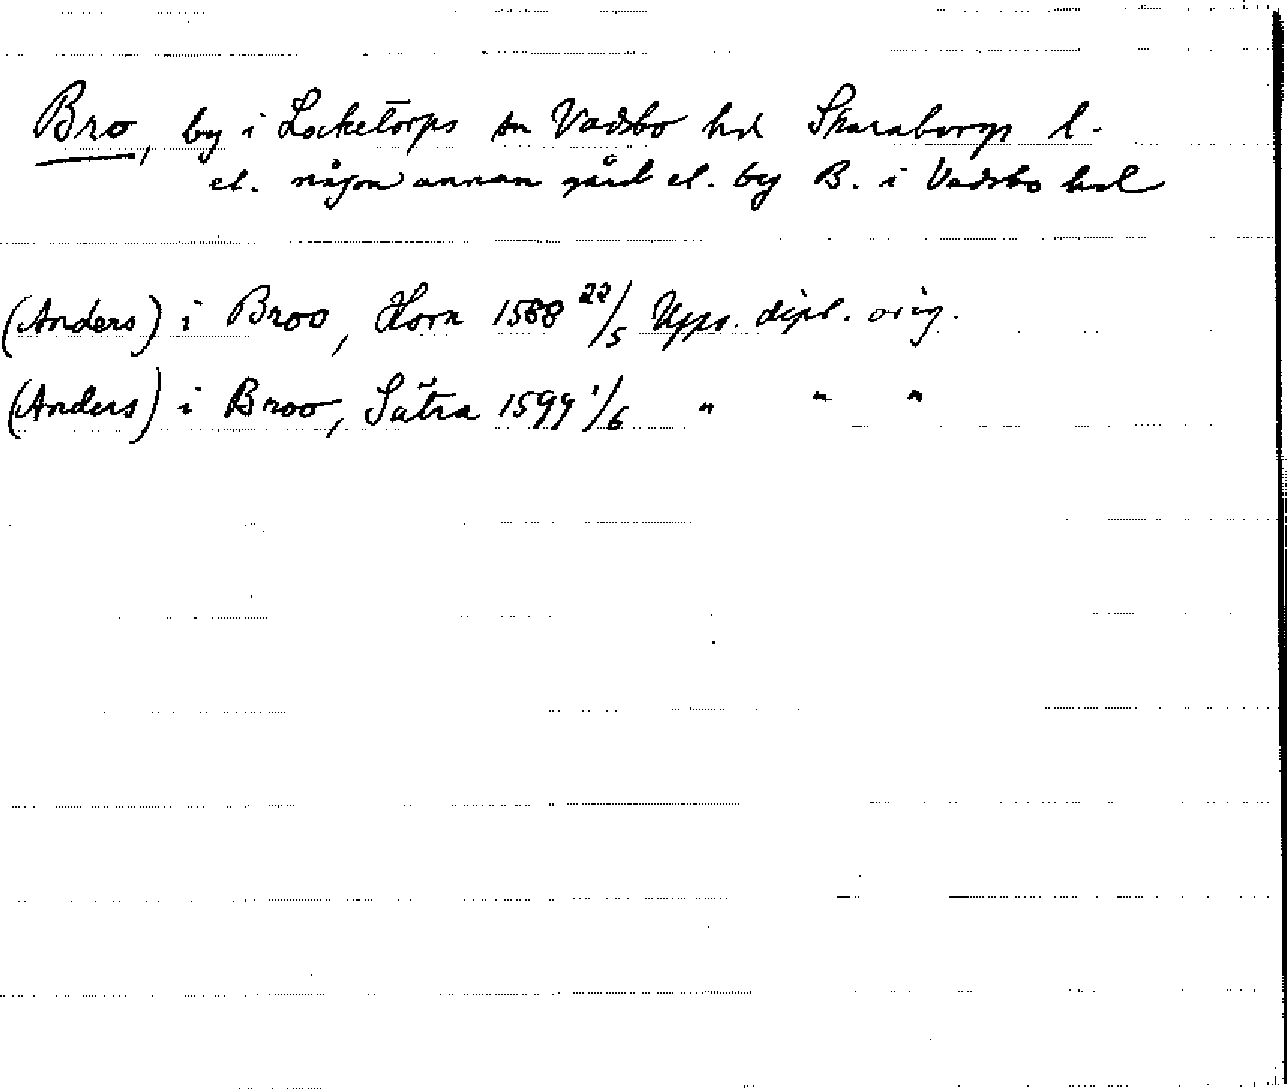 Bro, by i Locketorps sn Vadsbo hd Skaraborgs l.
el. någon annan gård el. by B. i Vadsbo hd
(Anders) i Broo, Horn 1588 22/5 Upps. dipl. orig.
(Anders) i Broo, Sätra 1599 1/6 " " "